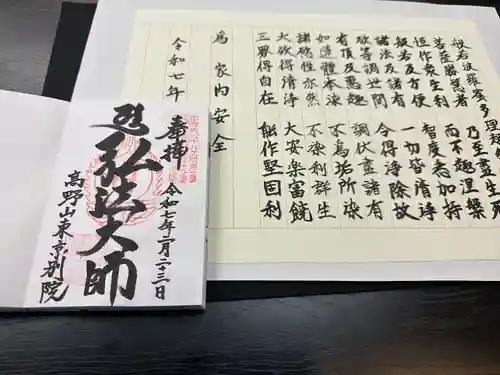 般若波羅蜜多理趣
菩薩勝慧者 乃至盡生死
恒作衆生利 而不趣涅槃
般若及方便 智度悉加持
諸法及諸有 一切皆清淨
欲等調世間 令得淨除故
有頂及惡趣 調伏盡諸有
如蓮體本染 不為垢所染
諸慾性亦然 不染利群生
大欲得清淨 大安樂富饒
三界得自在 能作堅固利
為 家内安全
令和七年
奉拝 令和七年二月二十三日
弘法大師
高野山東京別院